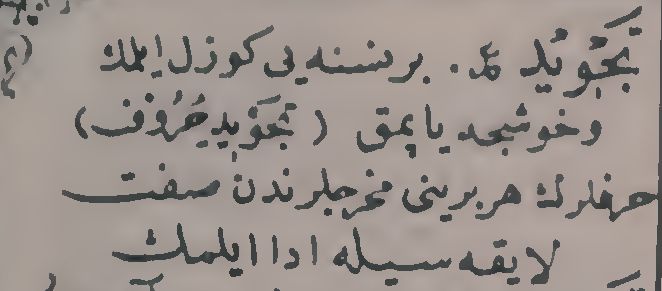 تَجْوِيدْ ع. برنسنه یی كوزل ایلمك
وخوشجه یاپمق (تَجْوِيدِ حُرُوفْ)
حرفلرك هر برینی مخرجلرندن صفت
لایقه سیله ادا ایلمك